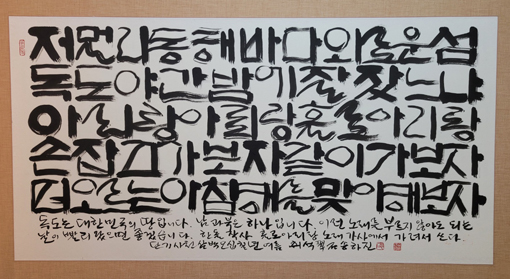 저멀리동해바다외로운섬
독도야간밤에잘잤느냐
아리랑아리랑홀로아리랑
손잡고가보자같이가보자
떠오르는아침해를맞이해보자
독도는 대한민국의 땅입니다. 남과북은 하나입니다. 이런 노래는 부르지 않아도 되는
날이 빨리 왔으면 좋겠습니다. 한돌 작사 홀로아리랑 노래가사에서 가려서 쓰다.
단기사천삼백 여름